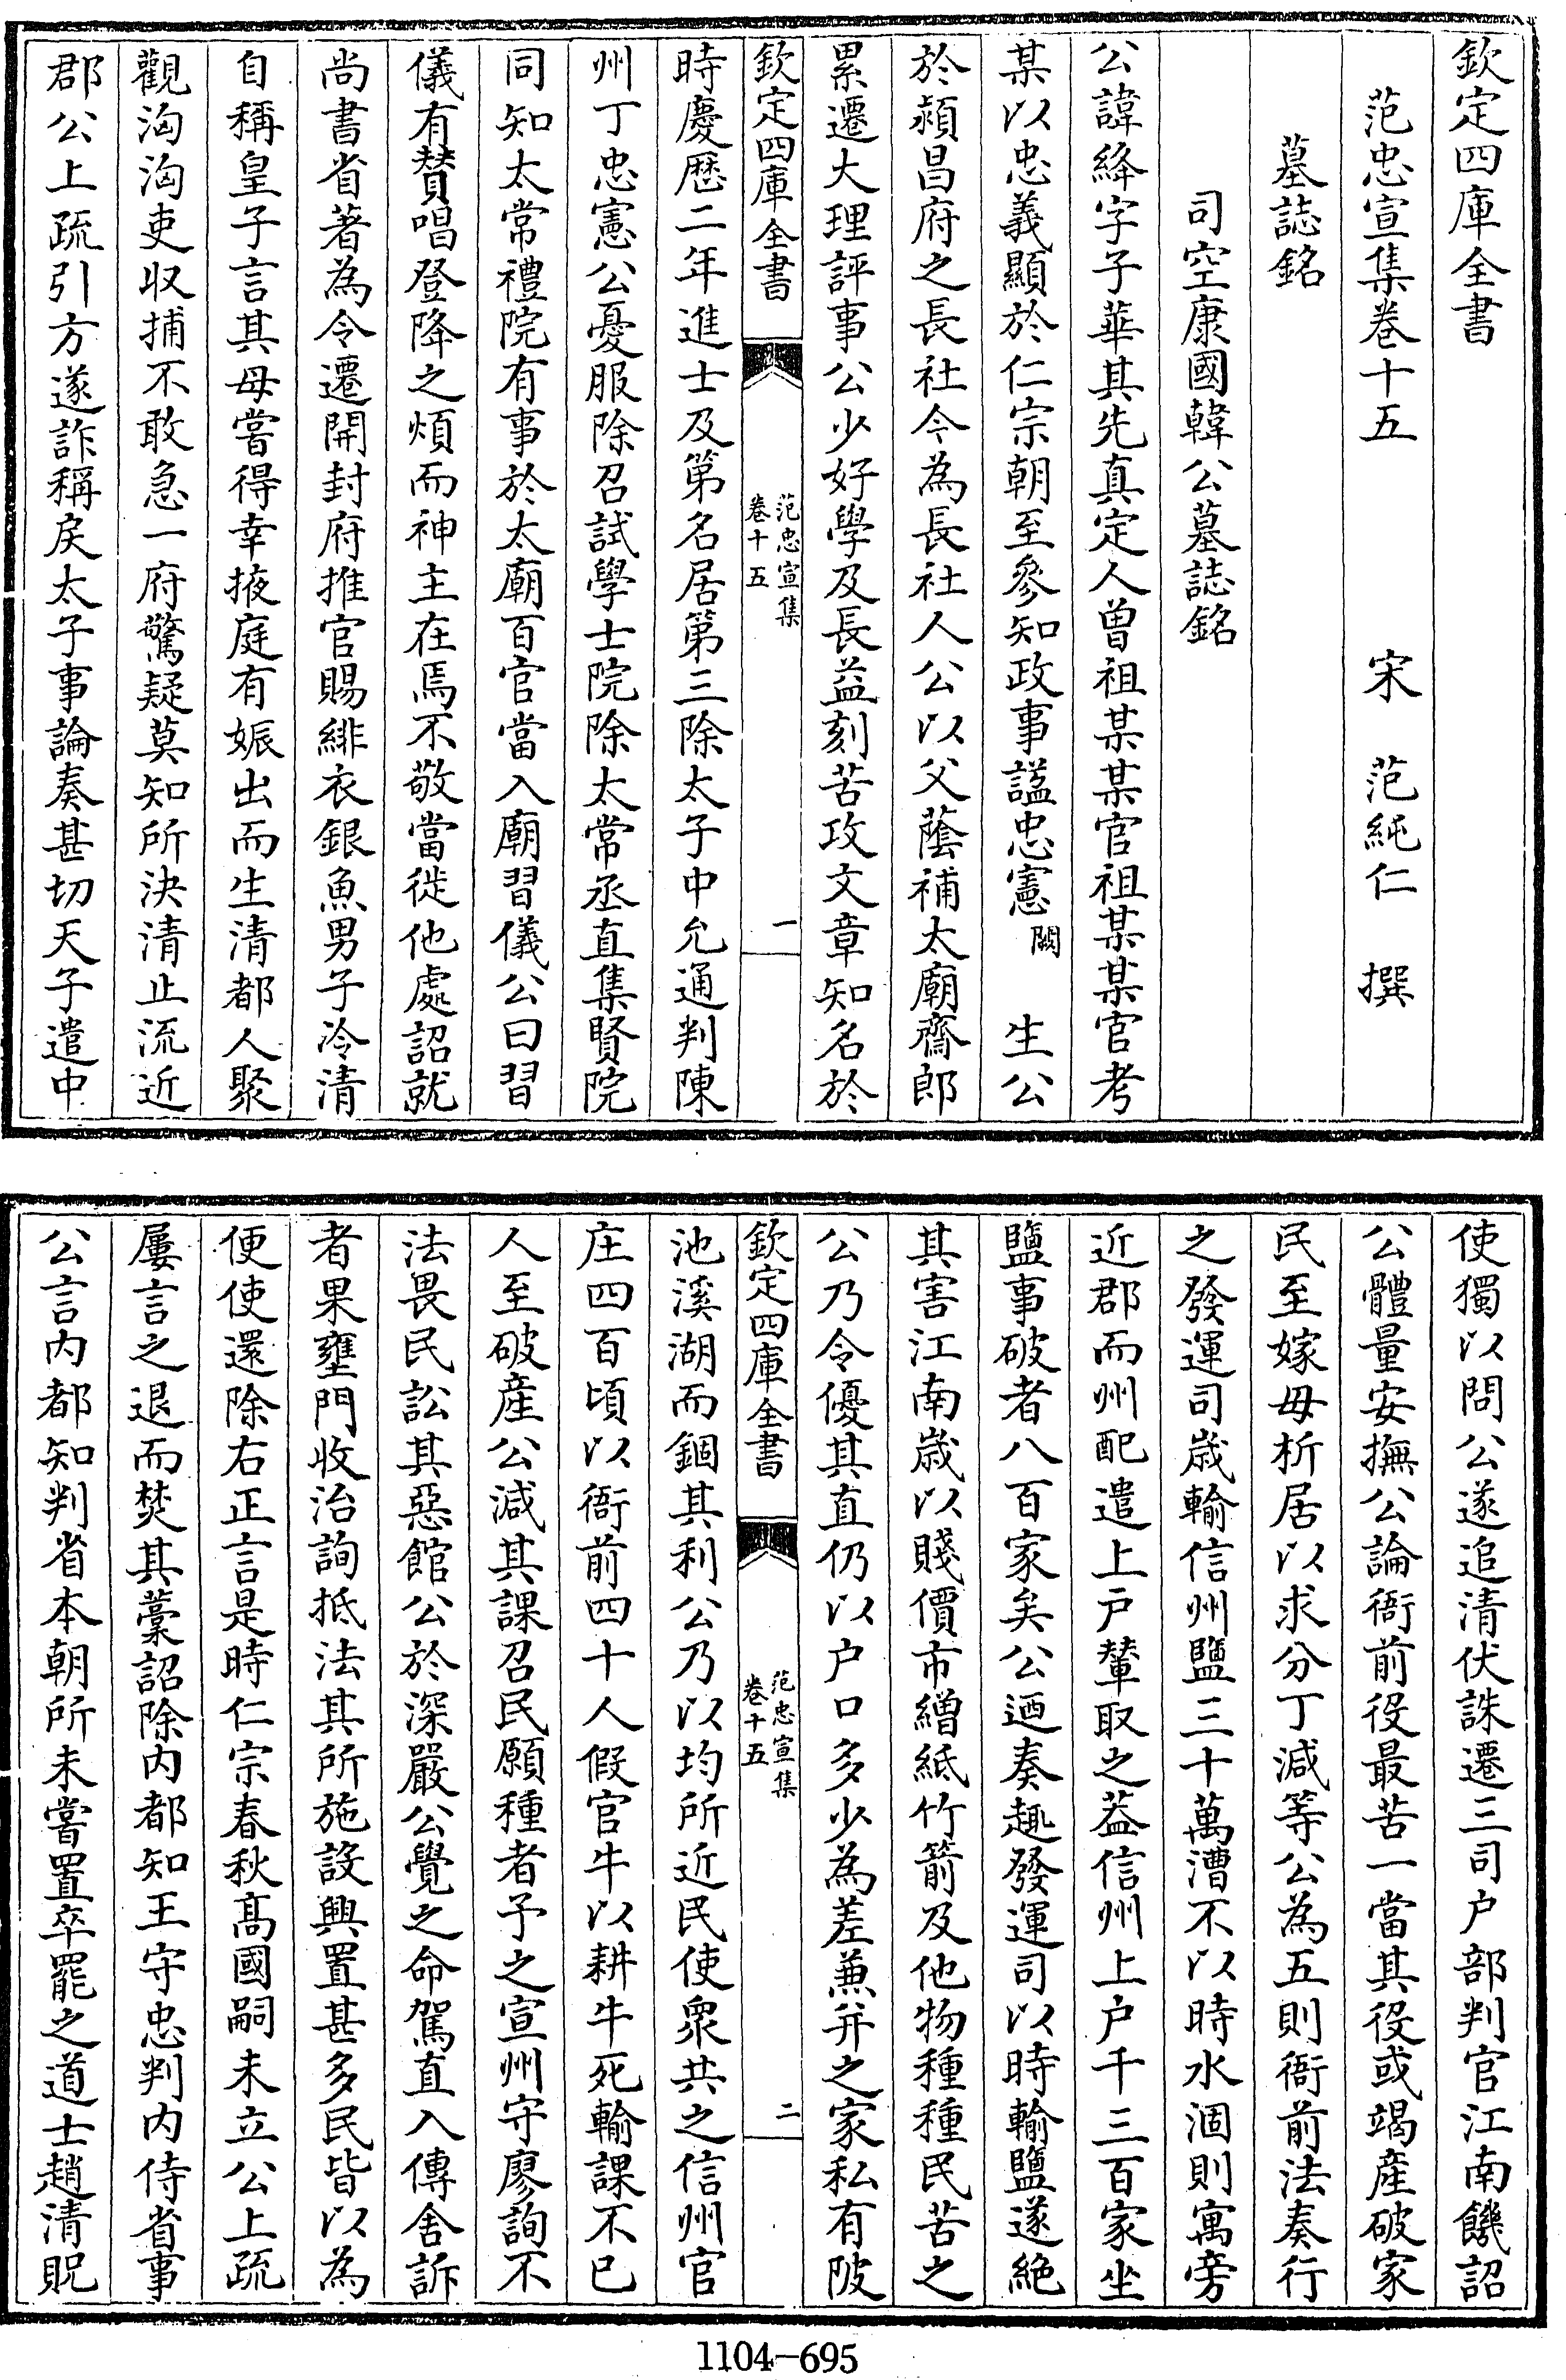 欽定四庫全書
范忠宣集卷十五　宋　范純仁　撰
墓誌銘
司空康國韓公墓誌銘
公諱絳字子華其先真定人曾祖某某官祖某某官考
某以忠義顯於仁宗朝至參知政事謚忠憲闕　生公
於潁昌府之長社今為長社人公以父蔭補太廟齋郎
累遷大理評事公少好學及長益刻苦攻文章知名於
欽定四庫全書
范忠宣集
卷十五
一
時慶歷二年進士及第名居第三除太子中允通判陳
州丁忠憲公憂服除召試學士院除太常丞直集賢院
同知太常禮院有事於太廟百官當入廟習儀公曰習
儀有贊唱登降之煩而神主在焉不敬當徙他處詔就
尚書省著為令遷開封府推官賜緋衣銀魚男子冷清
自稱皇子言其母嘗得幸掖庭有娠出而生清都人聚
觀洶洶吏收捕不敢急一府驚疑莫知所決清止流近
郡公上疏引方遂詐稱戾太子事論奏甚切天子遣中
使獨以問公遂追清伏誅遷三司户部判官江南饑詔
公體量安撫公論衙前役最苦一當其役或竭産破家
民至嫁母析居以求分丁減等公為五則衙前法奏行
之發運司歲輸信州鹽三十萬漕不以時水涸則寓旁
近郡而州配遣上戸輦取之葢信州上户千三百家坐
鹽事破者八百家矣公廼奏趣發運司以時輸鹽遂絶
其害江南歲以賤價市繒紙竹箭及他物種種民苦之
公乃令優其直仍以户口多少為差兼并之家私有陂
欽定四庫全書
范忠宣集
卷十五
二
池溪湖而錮其利公乃以均所近民使衆共之信州官
庄四百頃以衙前四十人假官牛以耕牛死輸課不已
人至破産公減其課召民願種者予之宣州守廖詢不
法畏民訟其惡館公於深嚴公覺之命駕直入傳舍訴
者果壅門收治詢抵法其所施設興置甚多民皆以為
便使還除右正言是時仁宗春秋髙國嗣未立公上疏
屢言之退而焚其藁詔除内都知王守忠判内侍省事
公言内都知判省本朝所未嘗置卒罷之道士趙清貺
1104-695